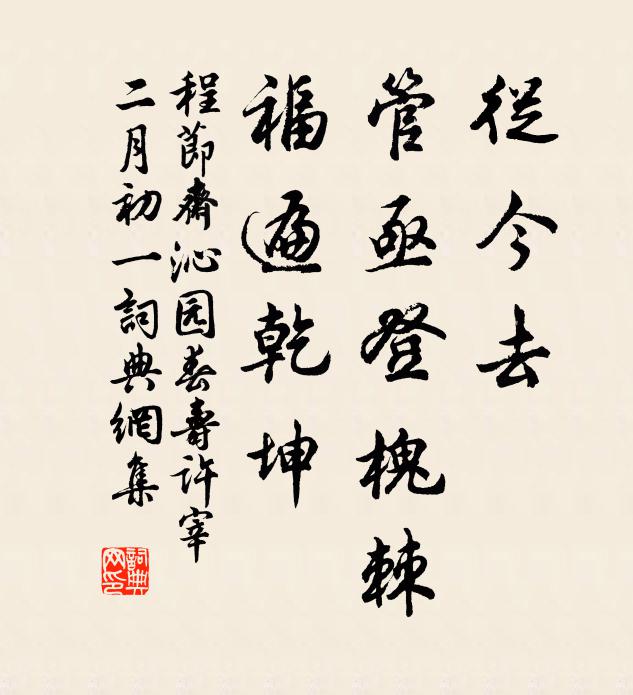 從今去
管亟登槐棘
福遍乾坤
程節齋沁园春壽許宰
二月初一詞典網集
詞典
网印